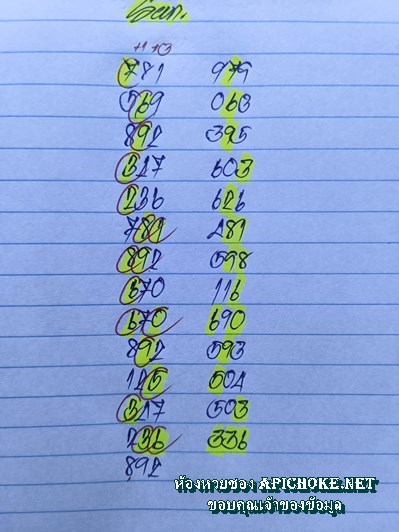 +1 +3
781 979
569 063
892 395
347 603
236 626
781 481
892 598
670 116
670 690
892 593
125 504
347 503
236 336
892
ห้องหวยซอง APICHOKE.NET
ขอบคุณเจ้าของข้อมูล